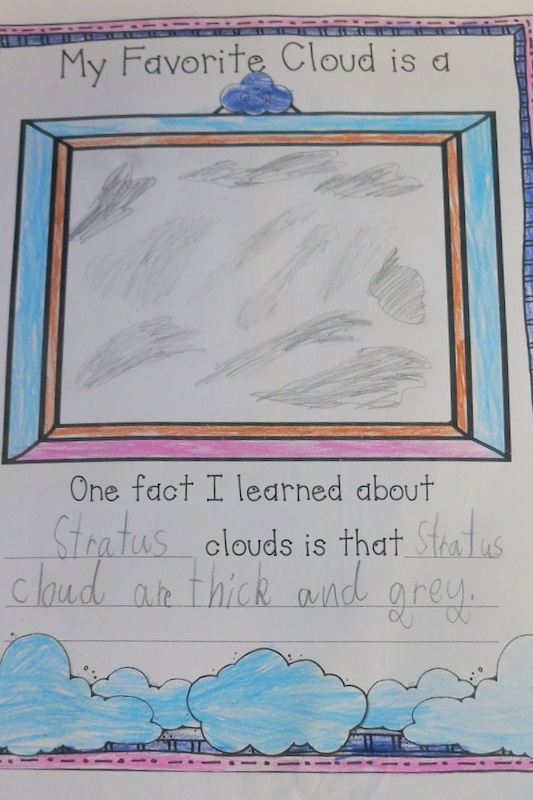 My Favorite Cloud is a
One fact I learned about
Stratus clouds is that Stratus
cloud are thick and grey.